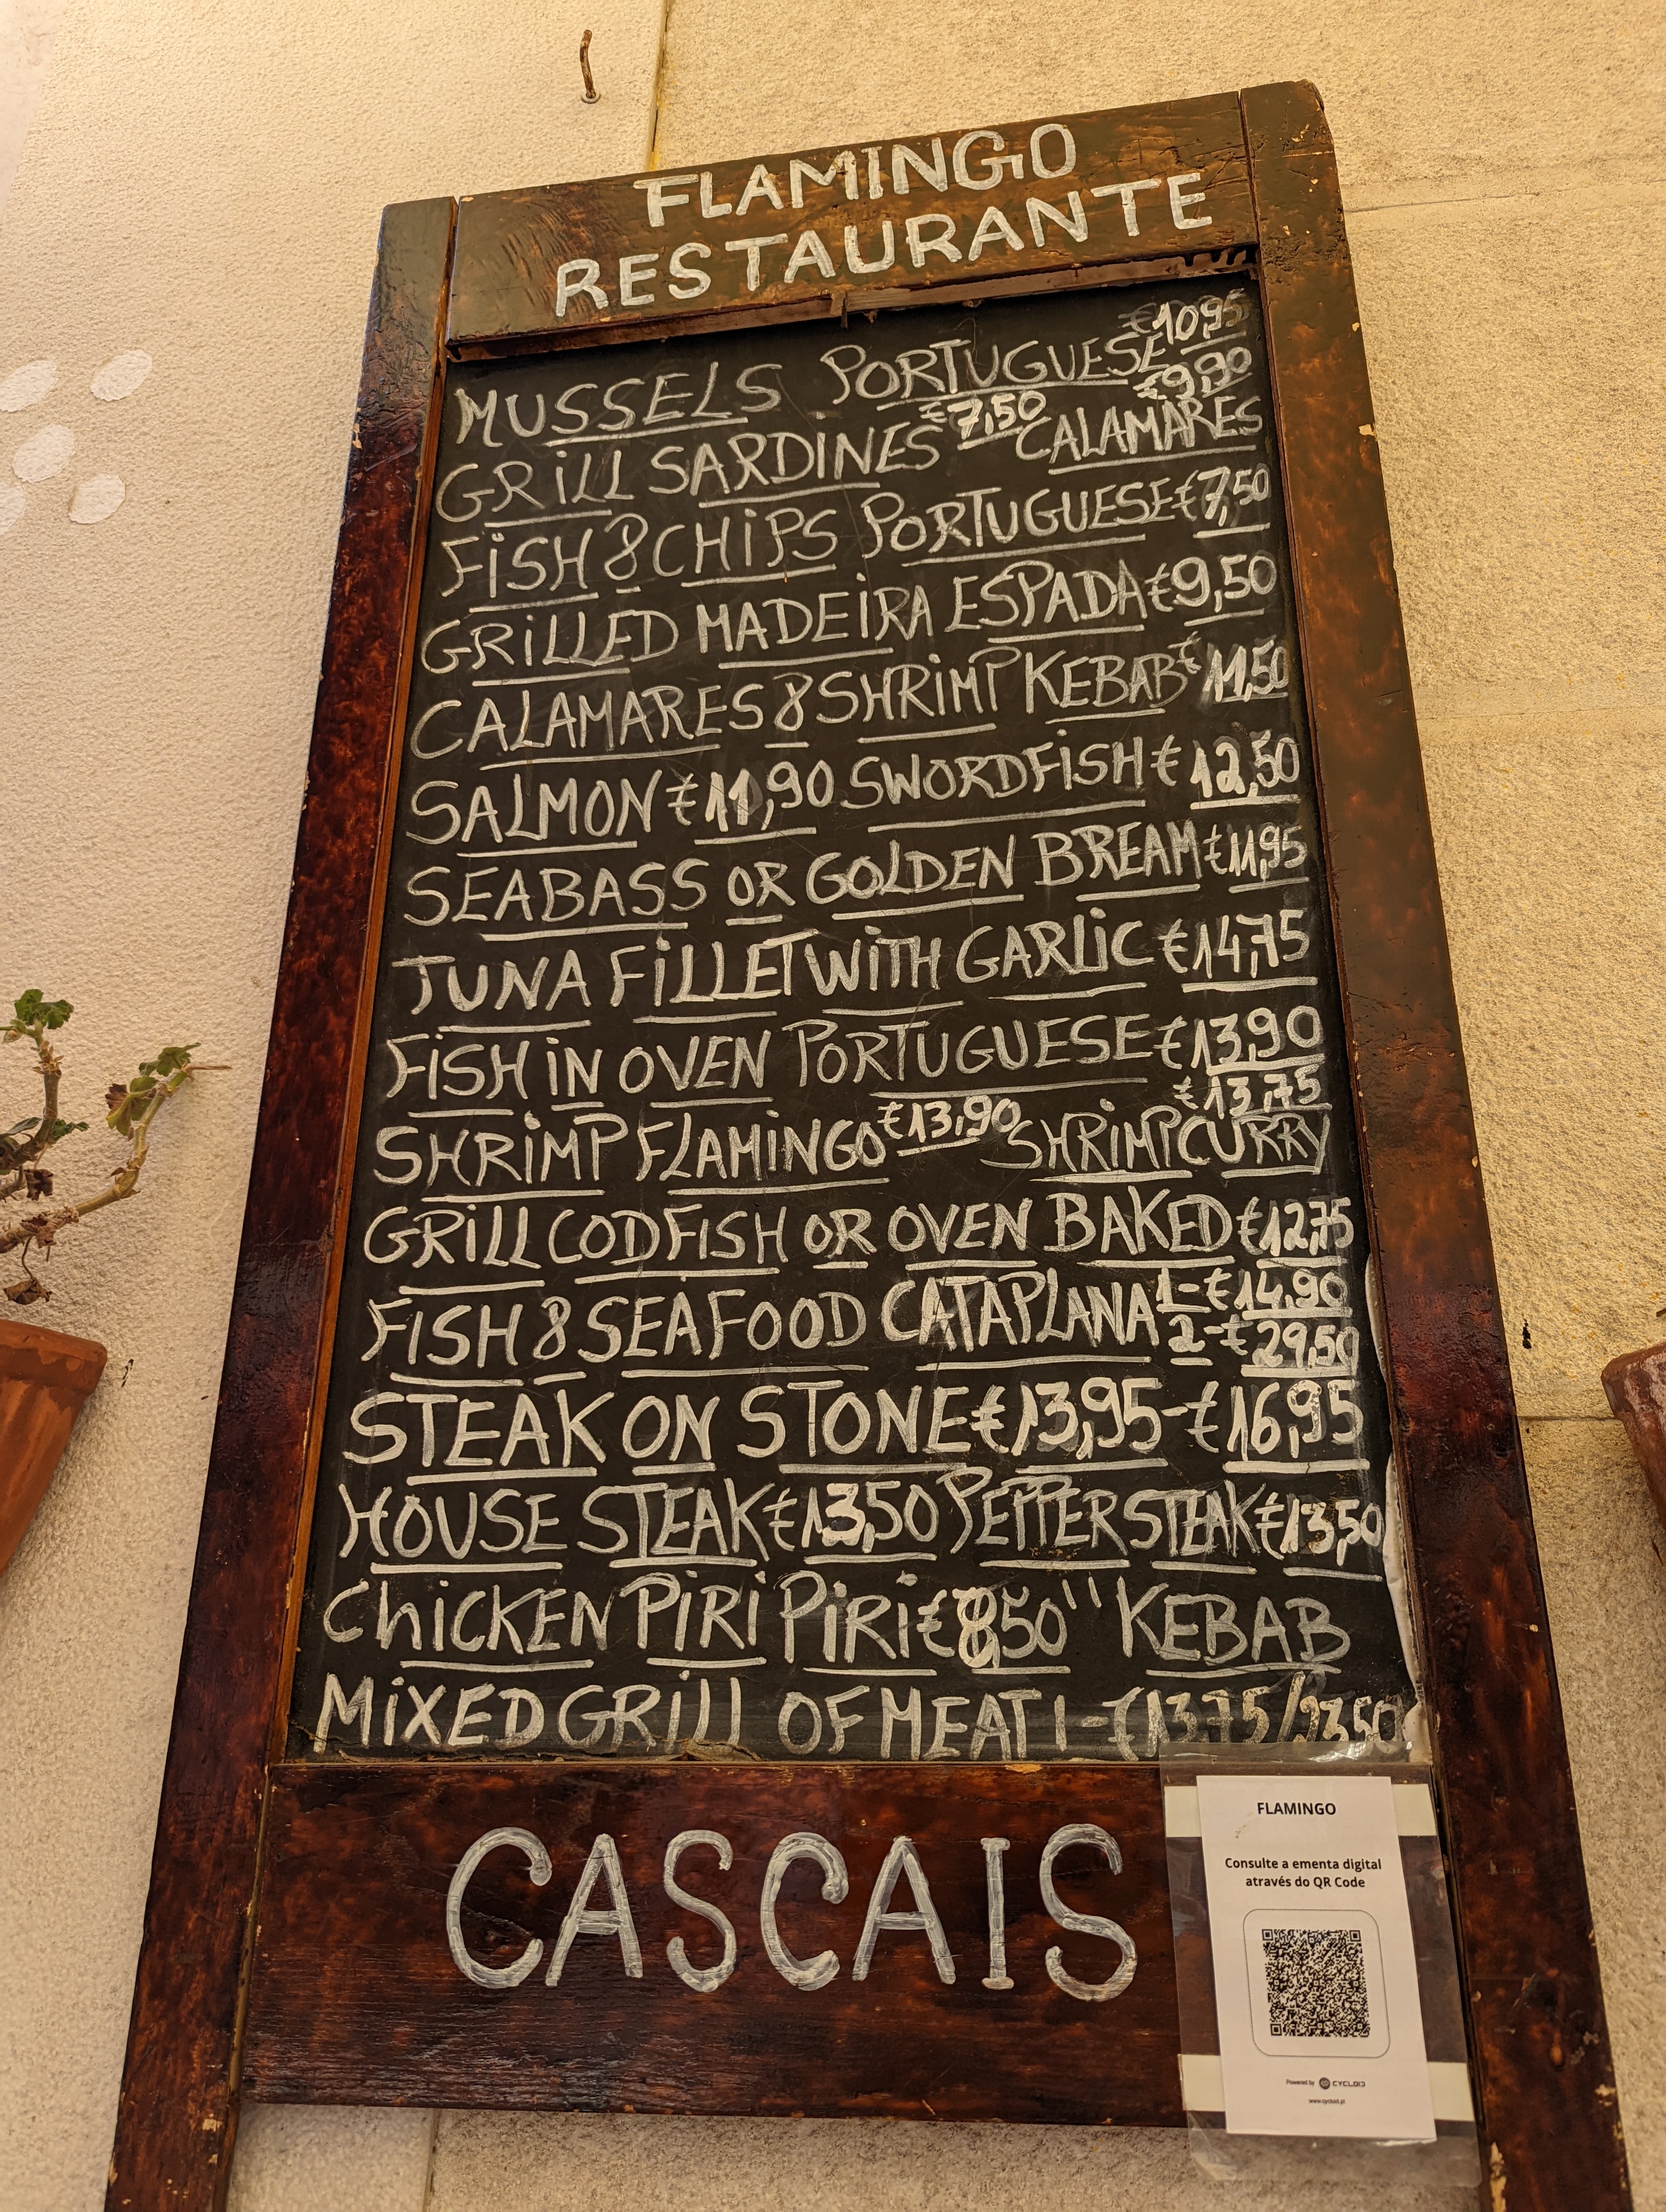 FLAMINGO
RESTAURANTE
€10,95
MUSSELS PORTUGUESE
€9,90
€7,50
GRILL SARDINES CALAMARES
FISH & CHIPS PORTUGUESE €7,50
GRILLED MADEIRA ESPADA €9,50
CALAMARES & SHRIMP KEBAB € 11,50
SALMON €11,90 SWORDFISH € 12,50
SEABASS OR GOLDEN BREAM €11,95
TUNA FILLET WITH GARLIC €14,75
FISH IN OVEN PORTUGUESE €13,90
€13,90 €13,75
SHRIMP FLAMINGO SHRIMP CURRY
GRILL CODFISH OR OVEN BAKED €12,75
FISH & SEAFOOD CATAPLANA 1-€14,90
2-€29,50
STEAK ON STONE €13,95-€16,95
HOUSE STEAK €13,50 PEPPER STEAK €13,50
CHICKEN PIRI PIRI €8,50 " KEBAB
MIXED GRILL OF MEAT 1-€13,75/23,50
CASCAIS
FLAMINGO
Consulte a ementa digital
através do QR Code
Powered by CYCLOID
www.cycloid.pt